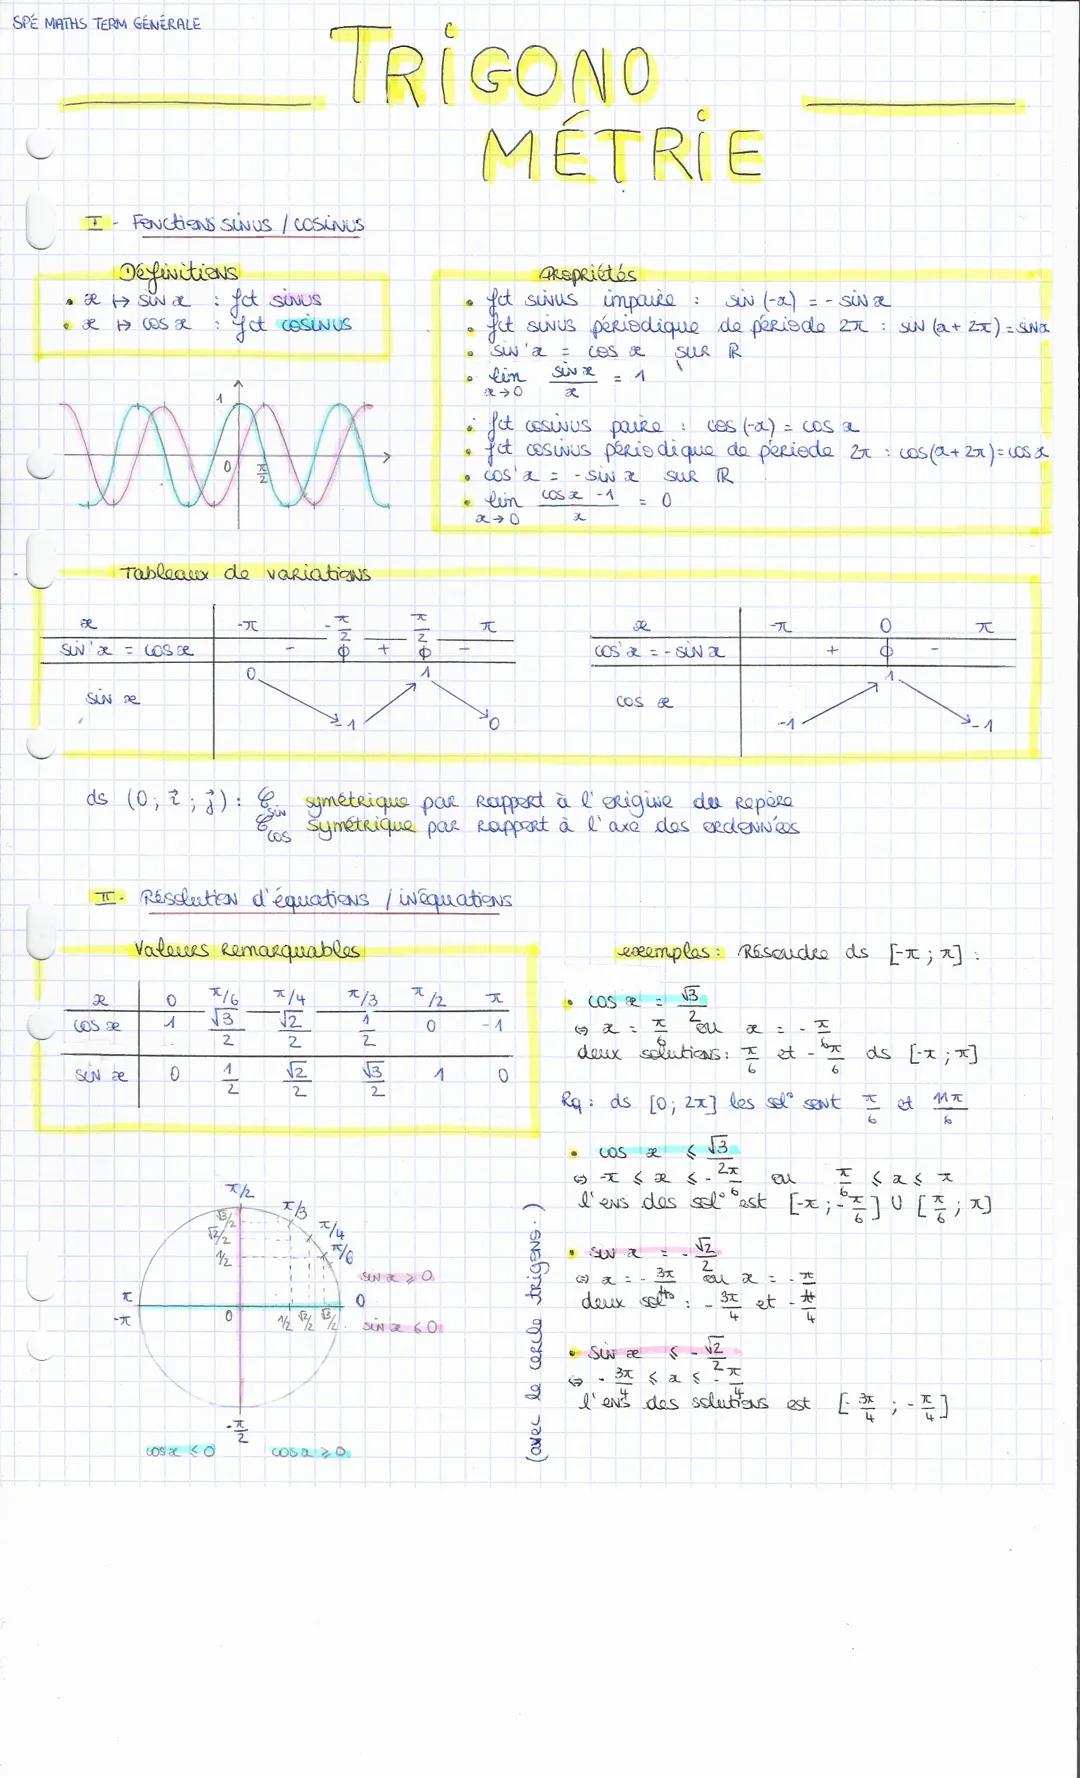 SPÉ MATHS TERM GÉNÉRALE
TRIGONO
MÉTRIE
I - Fonctions sinus / cosinus
Définitions
• x ↦ sin x : fct sinus
• x ↦ cos x : fct cosinus
Propriétés
• fct sinus impaire : sin (-x) = - sin x
• fct sinus périodique de période 2π : sin (x + 2π) = sin x
• sin'x = cos x sur ℝ
• lim x→0 sin x / x = 1
• fct cosinus paire : cos (-x) = cos x
• fct cosinus périodique de période 2π : cos(x + 2π) = cos x
• cos'x = - sin x sur ℝ
• lim x→0 (cos x - 1) / x = 0
1
0 π/2
Tableaux de variations
x -π -π/2 π/2 π
sin'x = cos x - 0 + 0 -
sin x 0 -1 1 0
x -π 0 π
cos'x = - sin x + 0 -
cos x -1 1 -1
ds (O; i⃗ ; j⃗) : 𝒞sin symétrique par rapport à l'origine du repère
𝒞cos symétrique par rapport à l'axe des ordonnées
II - Résolution d'équations / inéquations
Valeurs remarquables
x 0 π/6 π/4 π/3 π/2 π
cos x 1 √3/2 √2/2 1/2 0 -1
sin x 0 1/2 √2/2 √3/2 1 0
exemples : Résoudre ds [-π ; π] :
• cos x = √3/2
⇔ x = π/6 ou x = - π/6
deux solutions : π/6 et - π/6 ds [-π ; π]
Rq : ds [0 ; 2π] les sol° sont π/6 et 11π/6
• cos x ⩽ √3/2
⇔ -π ⩽ x ⩽ - π/6 ou π/6 ⩽ x ⩽ π
l'ens des sol° est [-π ; - π/6] ∪ [π/6 ; π]
• sin x = - √2/2
⇔ x = - 3π/4 ou x = - π/4
deux sol° : - 3π/4 et - π/4
• sin x ⩽ - √2/2
⇔ - 3π/4 ⩽ x ⩽ - π/4
l'ens des solutions est [- 3π/4 ; - π/4]
(avec le cercle trigono.)
π/2
π/3
π/4
π/6
√3/2
√2/2
1/2
sin x ⩾ 0
π
0
-π
0
1/2 √2/2 √3/2
sin x ⩽ 0
-π/2
cos x ⩽ 0 cos x ⩾ 0